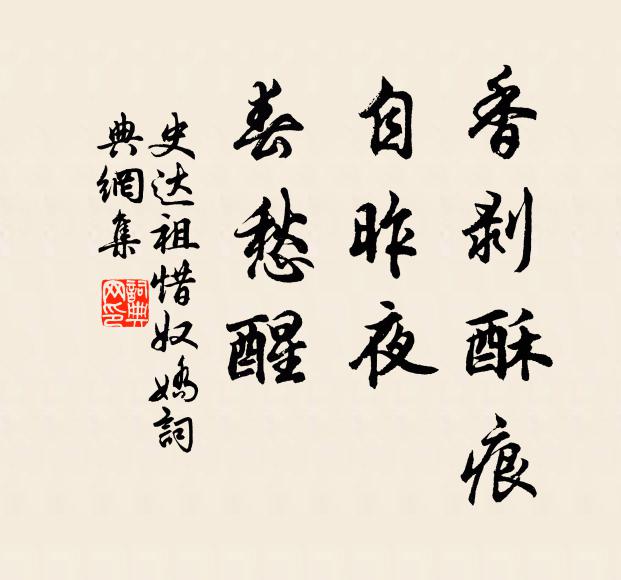 香剥酥痕
自昨夜
春愁醒
史达祖惜奴娇詞
典網集
詞典网印